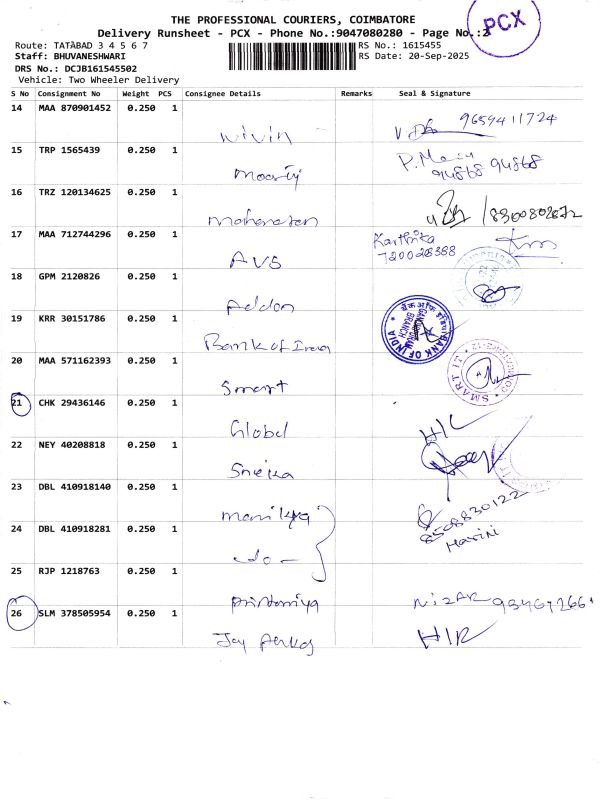 THE PROFESSIONAL COURIERS, COIMBATORE
Delivery Runsheet - PCX - Phone No.:9047080280 - Page No.:2
PCX
Route: TATABAD 3 4 5 6 7
RS No.: 1615455
Staff: BHUVANESHWARI
RS Date: 20-Sep-2025
DRS No.: DCJB161545502
Vehicle: Two Wheeler Delivery
S No Consignment No Weight PCS Consignee Details Remarks Seal & Signature
14 MAA 870901452 0.250 1
Nivin 9659411724
15 TRP 1565439 0.250 1
94868 94868
16 TRZ 120134625 0.250 1
17 MAA 712744296 0.250 1
AVS Karthika
7200028388
18 GPM 2120826 0.250 1
Addon
19 KRR 30151786 0.250 1
Bank of India
BANK OF INDIA
BRANCH
20 MAA 571162393 0.250 1
Smart
SMART IT
21 CHK 29436146 0.250 1
Global
22 NEY 40208818 0.250 1
Sneka
23 DBL 410918140 0.250 1
8508830122
Harini
24 DBL 410918281 0.250 1
- do -
25 RJP 1218763 0.250 1
NiZAR
26 SLM 378505954 0.250 1
Jay